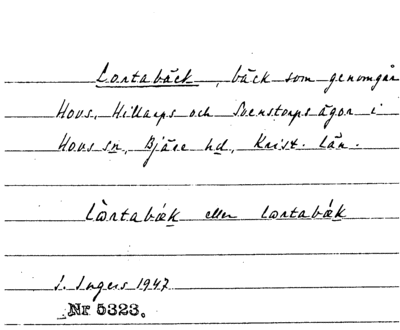 Lortabäck, bäck som genomgår
Hovs, Hillarps och Svenstorps ägor i
Hovs sn, Bjäre hd, Krist. län.
lòrtabæ̀k eller lòrtabæ̀k
I. Ingers 1947
Nr 5323.